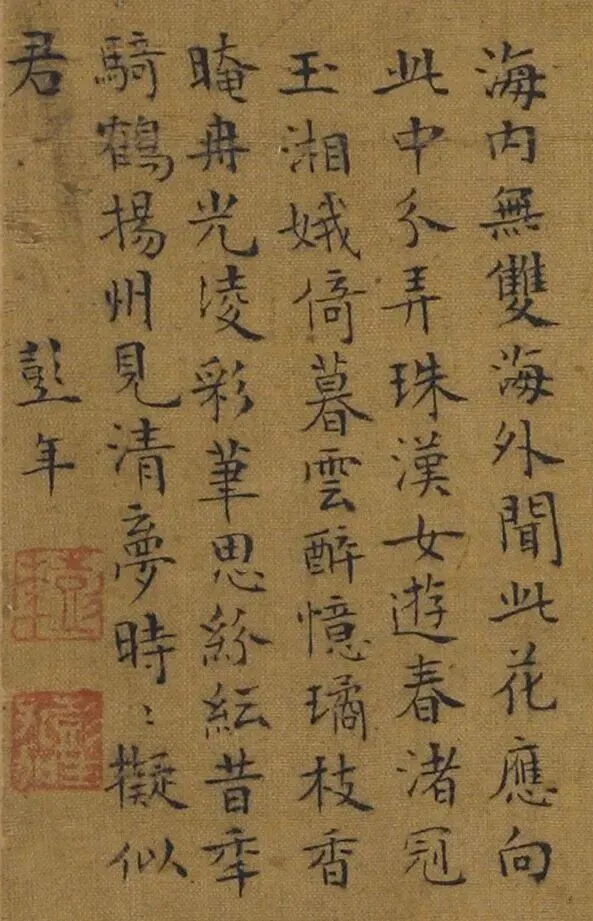 海内無雙海外聞此花應向
此中分弄珠漢女遊春渚冠
玉湘娥倚暮雲醉憶璚枝香
晻冉光凌彩筆思紛紜昔年
騎鶴揚州見清夢時〻擬似
君
彭年